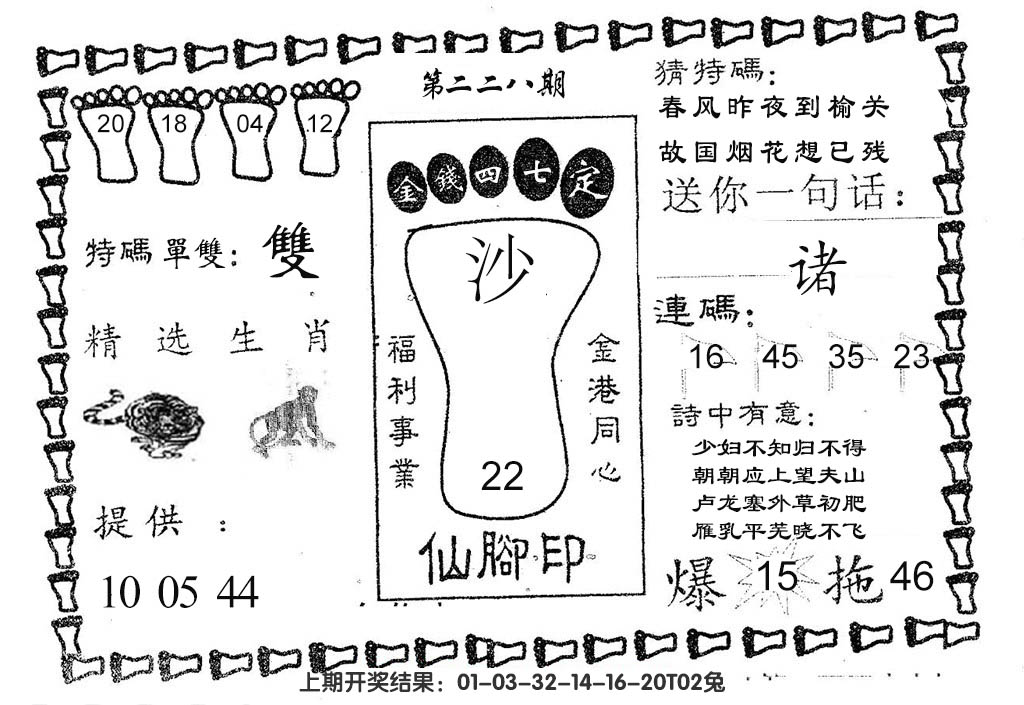 第二二八期
20 18 04 12
特碼單雙：雙
精选生肖
提供：
10 05 44
金錢四七定
沙
福利事業
金港同心
22
仙腳印
猜特碼：
春风昨夜到榆关
故国烟花想已残
送你一句话：
诸
連碼：
16 45 35 23
詩中有意：
少妇不知归不得
朝朝应上望夫山
卢龙塞外草初肥
雁乳平芜晓不飞
爆 15 拖 46
上期开奖结果：01-03-32-14-16-20T02兔